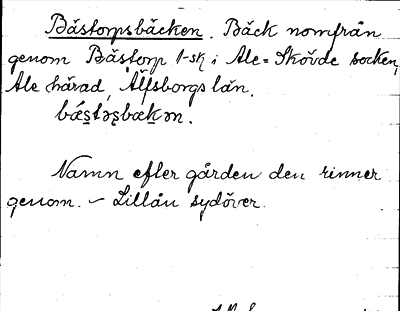 Bästorpsbäcken. Bäck norrifrån
genom Bästorp 1-sk i Ale-Skövde socken,
Ale härad, Älfsborgs län.
bǽstəʂbækən.
Namn efter gården den rinner
genom. – Lillån sydöver.